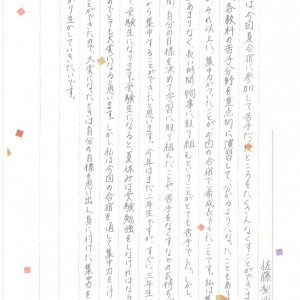 佐藤梨
は今回夏合宿に参加して苦手だったところをたくさんなくすことができま
各教科の苦手分野を重点的に演習して、分かるようになったこともあり
れ以上に、集中力がついたことが今回の合宿で一番成長できたことです。私は集
あまりなく、長い時間、物事に取り組むということがとても苦手でした。しかし、
間、自分の目標を決めて学習に取り組んだことや、苦手をなくすなどの気持ち
から集中することができたと思います。今年はまだ二年生ですが、すぐに三年生
受験生になります。受験生になると、夏休みは受験勉強をしなければならな
のでとても大変になると思います。しかし私は今回の合宿を通して集中力を
とができたので、大変になったときは自分の目標を思い出し、身に付けた集中力を
かり生かしていきたいです。